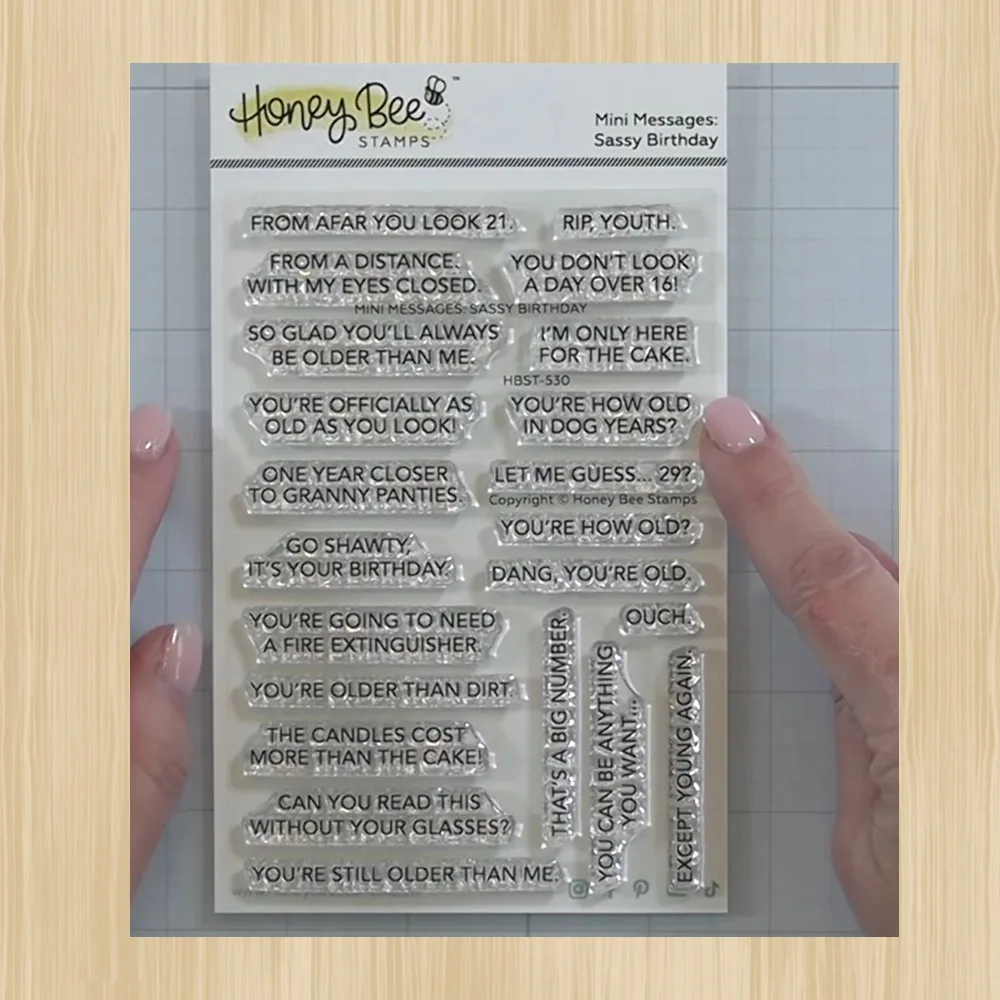 Honey Bee™
STAMPS
Mini Messages:
Sassy Birthday
FROM AFAR YOU LOOK 21.
RIP, YOUTH.
FROM A DISTANCE.
WITH MY EYES CLOSED.
YOU DON'T LOOK
A DAY OVER 16!
MINI MESSAGES: SASSY BIRTHDAY
SO GLAD YOU'LL ALWAYS
BE OLDER THAN ME.
I'M ONLY HERE
FOR THE CAKE.
HBST-530
YOU'RE OFFICIALLY AS
OLD AS YOU LOOK!
YOU'RE HOW OLD
IN DOG YEARS?
ONE YEAR CLOSER
TO GRANNY PANTIES.
LET ME GUESS... 29?
Copyright © Honey Bee Stamps
YOU'RE HOW OLD?
GO SHAWTY,
IT'S YOUR BIRTHDAY.
DANG, YOU'RE OLD.
OUCH.
YOU'RE GOING TO NEED
A FIRE EXTINGUISHER.
YOU'RE OLDER THAN DIRT.
THE CANDLES COST
MORE THAN THE CAKE!
CAN YOU READ THIS
WITHOUT YOUR GLASSES?
YOU'RE STILL OLDER THAN ME.
THAT'S A BIG NUMBER.
YOU CAN BE ANYTHING
YOU WANT...
EXCEPT YOUNG AGAIN.